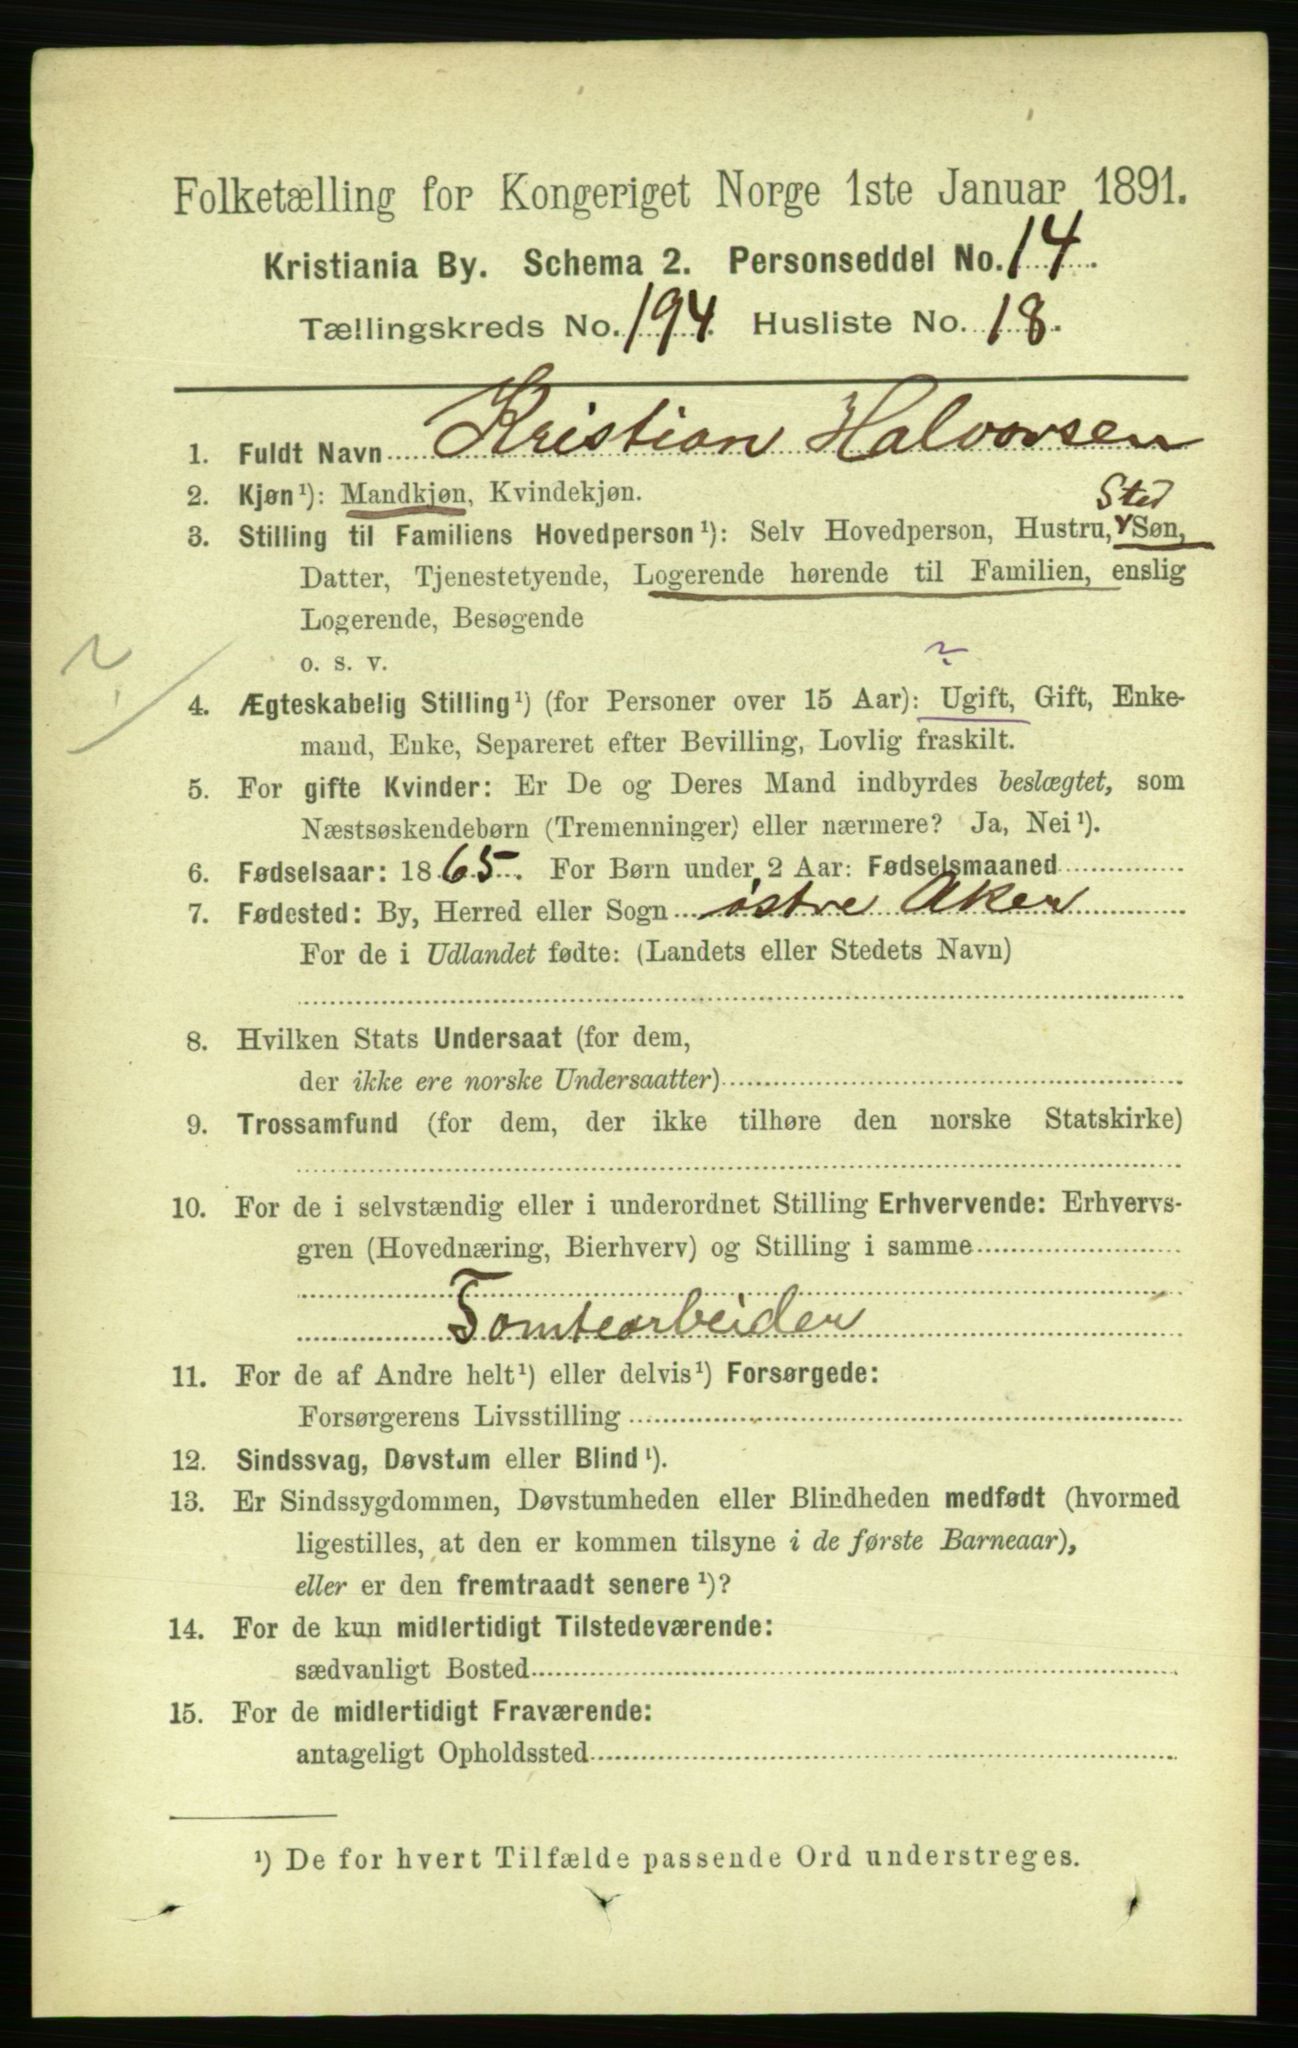 Folketælling for Kongeriget Norge 1ste Januar 1891.
Kristiania By. Schema 2. Personseddel No. 14.
Tællingskreds No. 194. Husliste No. 18.
1. Fuldt Navn Kristian Halvorsen
2. Kjøn¹): Mandkjøn, Kvindekjøn.
Sted
3. Stilling til Familiens Hovedperson¹): Selv Hovedperson, Hustru, Søn,
Datter, Tjenestetyende, Logerende hørende til Familien, enslig
Logerende, Besøgende
o. s. v.
?
?
4. Ægteskabelig Stilling¹) (for Personer over 15 Aar): Ugift, Gift, Enke-
mand, Enke, Separeret efter Bevilling, Lovlig fraskilt.
5. For gifte Kvinder: Er De og Deres Mand indbyrdes beslægtet, som
Næstsøskendebørn (Tremenninger) eller nærmere? Ja, Nei¹).
6. Fødselsaar: 1865. For Børn under 2 Aar: Fødselsmaaned
7. Fødested: By, Herred eller Sogn østre Aker
For de i Udlandet fødte: (Landets eller Stedets Navn)
8. Hvilken Stats Undersaat (for dem,
der ikke ere norske Undersaatter)
9. Trossamfund (for dem, der ikke tilhøre den norske Statskirke)
10. For de i selvstændig eller i underordnet Stilling Erhvervende: Erhvervs-
gren (Hovednæring, Bierhverv) og Stilling i samme
Tomtearbeider
11. For de af Andre helt¹) eller delvis¹) Forsørgede:
Forsørgerens Livsstilling
12. Sindssvag, Døvstum eller Blind¹).
13. Er Sindssygdommen, Døvstumheden eller Blindheden medfødt (hvormed
ligestilles, at den er kommen tilsyne i de første Barneaar),
eller er den fremtraadt senere¹)?
14. For de kun midlertidigt Tilstedeværende:
sædvanligt Bosted
15. For de midlertidigt Fraværende:
antageligt Opholdssted
¹) De for hvert Tilfælde passende Ord understreges.